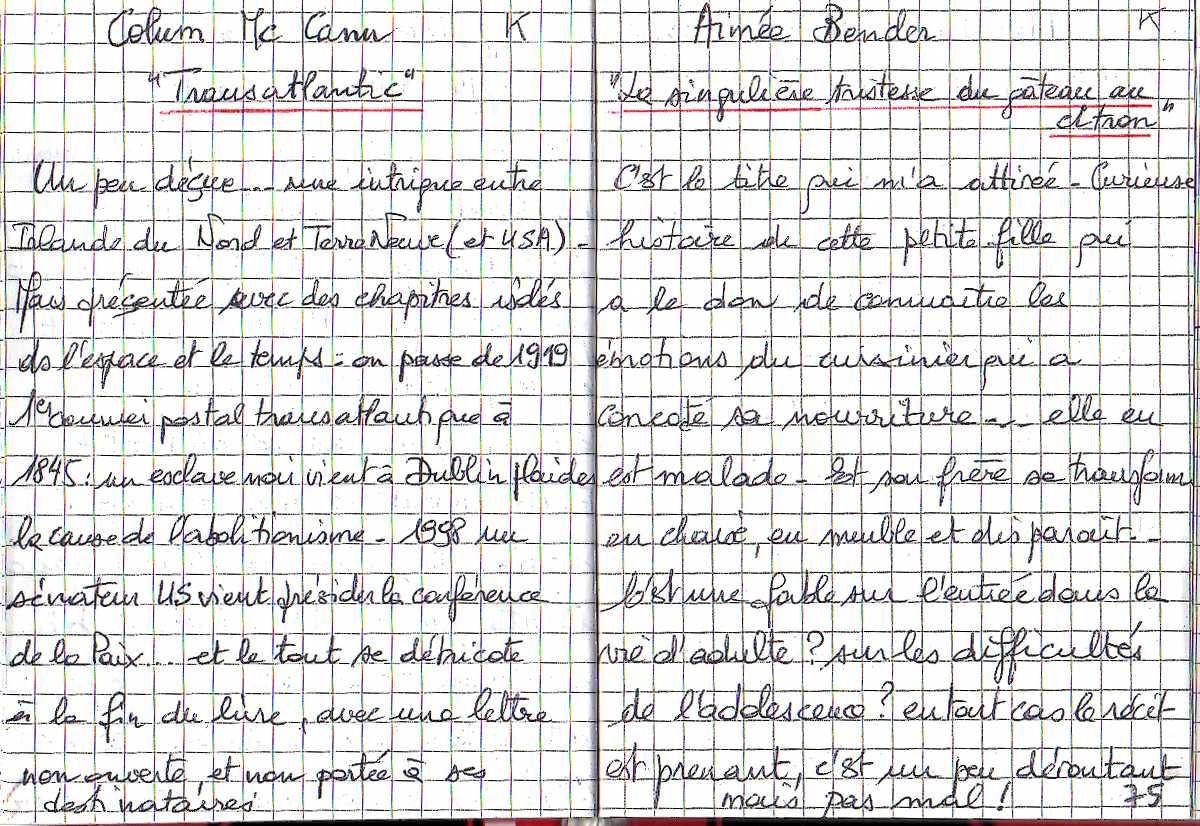 Colum Mc Cann K
"Transatlantic"
Un peu déçue... une intrigue entre
Irlande du Nord et Terre Neuve (et USA) -
Mais présentée avec des chapitres
ds l'espace et le temps : on passe de 1919
1er courrier postal transatlantique à
1845 : un esclave noir vient à Dublin plaider
la cause de l'abolitionisme - 1998 un
sénateur US vient présider la conférence
de la Paix... et le tout se détricote
à la fin du livre, avec une lettre
non ouverte et non portée à ses
destinataires
Aimée Bender K
"La singulière tristesse du gâteau au
citron"
C'est le titre qui m'a attirée - Curieuse
histoire de cette petite fille qui
a le don de connaitre les
émotions du cuisinier qui a
concocté sa nourriture... elle en
est malade - Et son frère se transform
en chaise, en meuble et disparait -
C'est une fable sur l'entrée dans la
vie d'adulte ? sur les difficultés
de l'adolescence ? en tout cas le récit
est prenant, c'est un peu déroutant
mais pas mal !
75